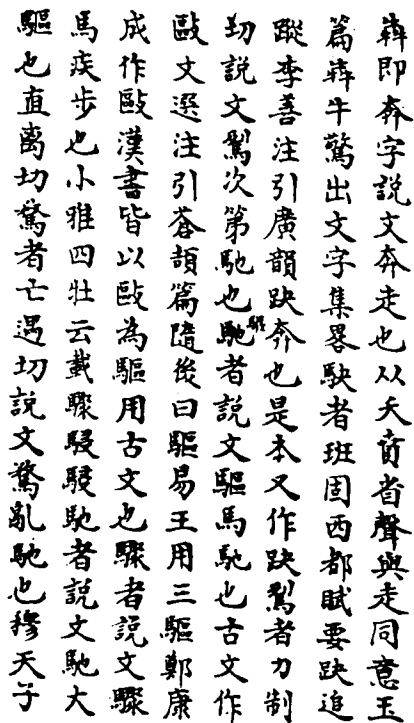 犇即奔字説文奔走也从夭賁省聲與走同意王
篇犇牛驚出文字集畧駃者班固西都賦要趹追
蹤李善注引廣韻趹奔也是本又作趹鴷者力制
切説文鴷次第馳也馳者説文驅馬馳也古文作
敺文選注引蒼頡篇隨後曰驅易王用三驅鄭康
成作敺漢書皆以敺為驅用古文也驟者説文驟
馬疾步也小雅四牡云載驟駸駸馳者説文馳大
驅也直离切騖者亡遇切説文騖亂馳也穆天子